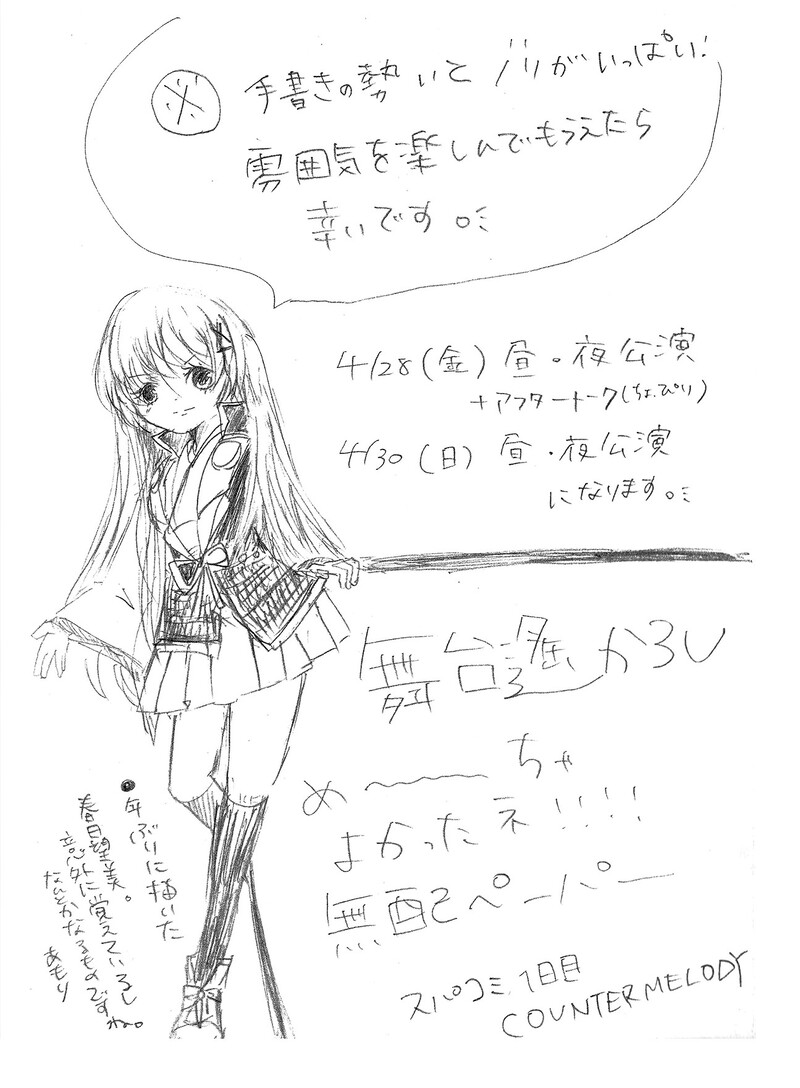 ※ 手書きの勢いとノリがいっぱい!
雰囲気を楽しんでもらえたら
幸いです。
4/28(金) 昼・夜公演
+アフタートーク(ちょっぴり)
4/30(日) 昼・夜公演
になります。
舞台遙かろし
め〜ちゃ
よかったネ!!!!
無配ペーパー
スパコミ1日目
COUNTERMELODY
●年ぶりに描いた
春日望美。
意外に覚えているし
なんとかなるものですね。
あもり